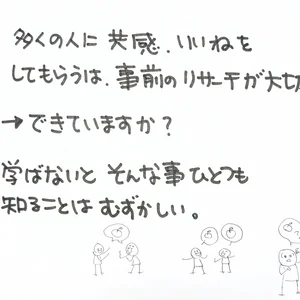 多くの人に 共感、いいねを
してもらうは、事前のリサーチが大切
→ できていますか？
学ばないと そんな事ひとつも
知ることは むずかしい。